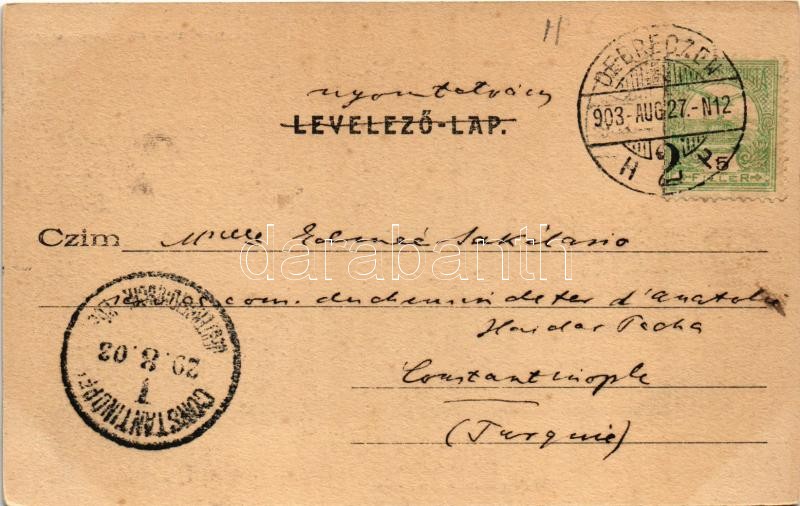 nyomtatvány
LEVELEZŐ-LAP.
DEBRECZEN
903-AUG.27.-N12
FILLER
Czim Mlle Sakélario
com. du chemin de fer d'Anatolie
Haidar Pacha
Constantinople
(Turquie)
CONSTANTINOPEL
1
29.8.03
darabanth